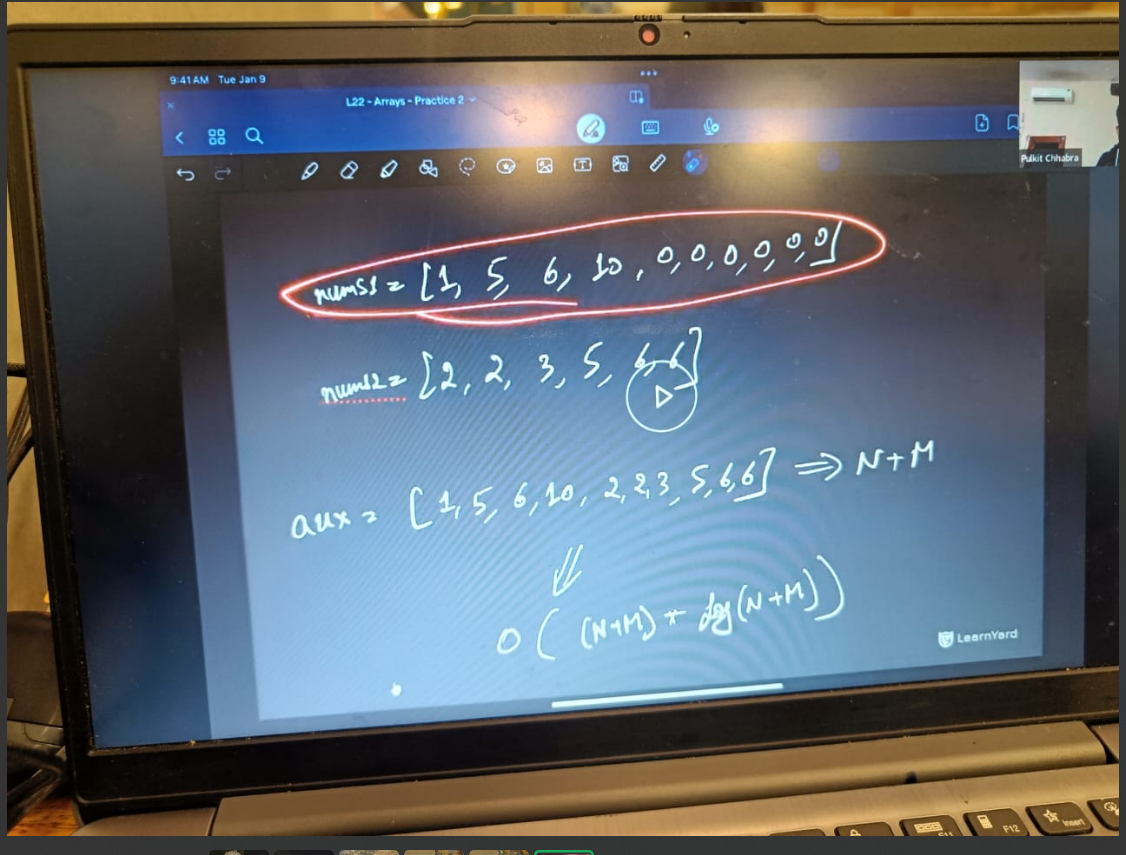 9:41 AM Tue Jan 9
L22 - Arrays - Practice 2
Pulkit Chhabra
nums1 = [1, 5, 6, 10, 0, 0, 0, 0, 0, 0]
nums2 = [2, 2, 3, 5, 6, 6]
aux = [1, 5, 6, 10, 2, 2, 3, 5, 6, 6] ⇒ N+M
⇓
O ( (N+M) * log (N+M) )
LearnYard
F11 F12 Insert